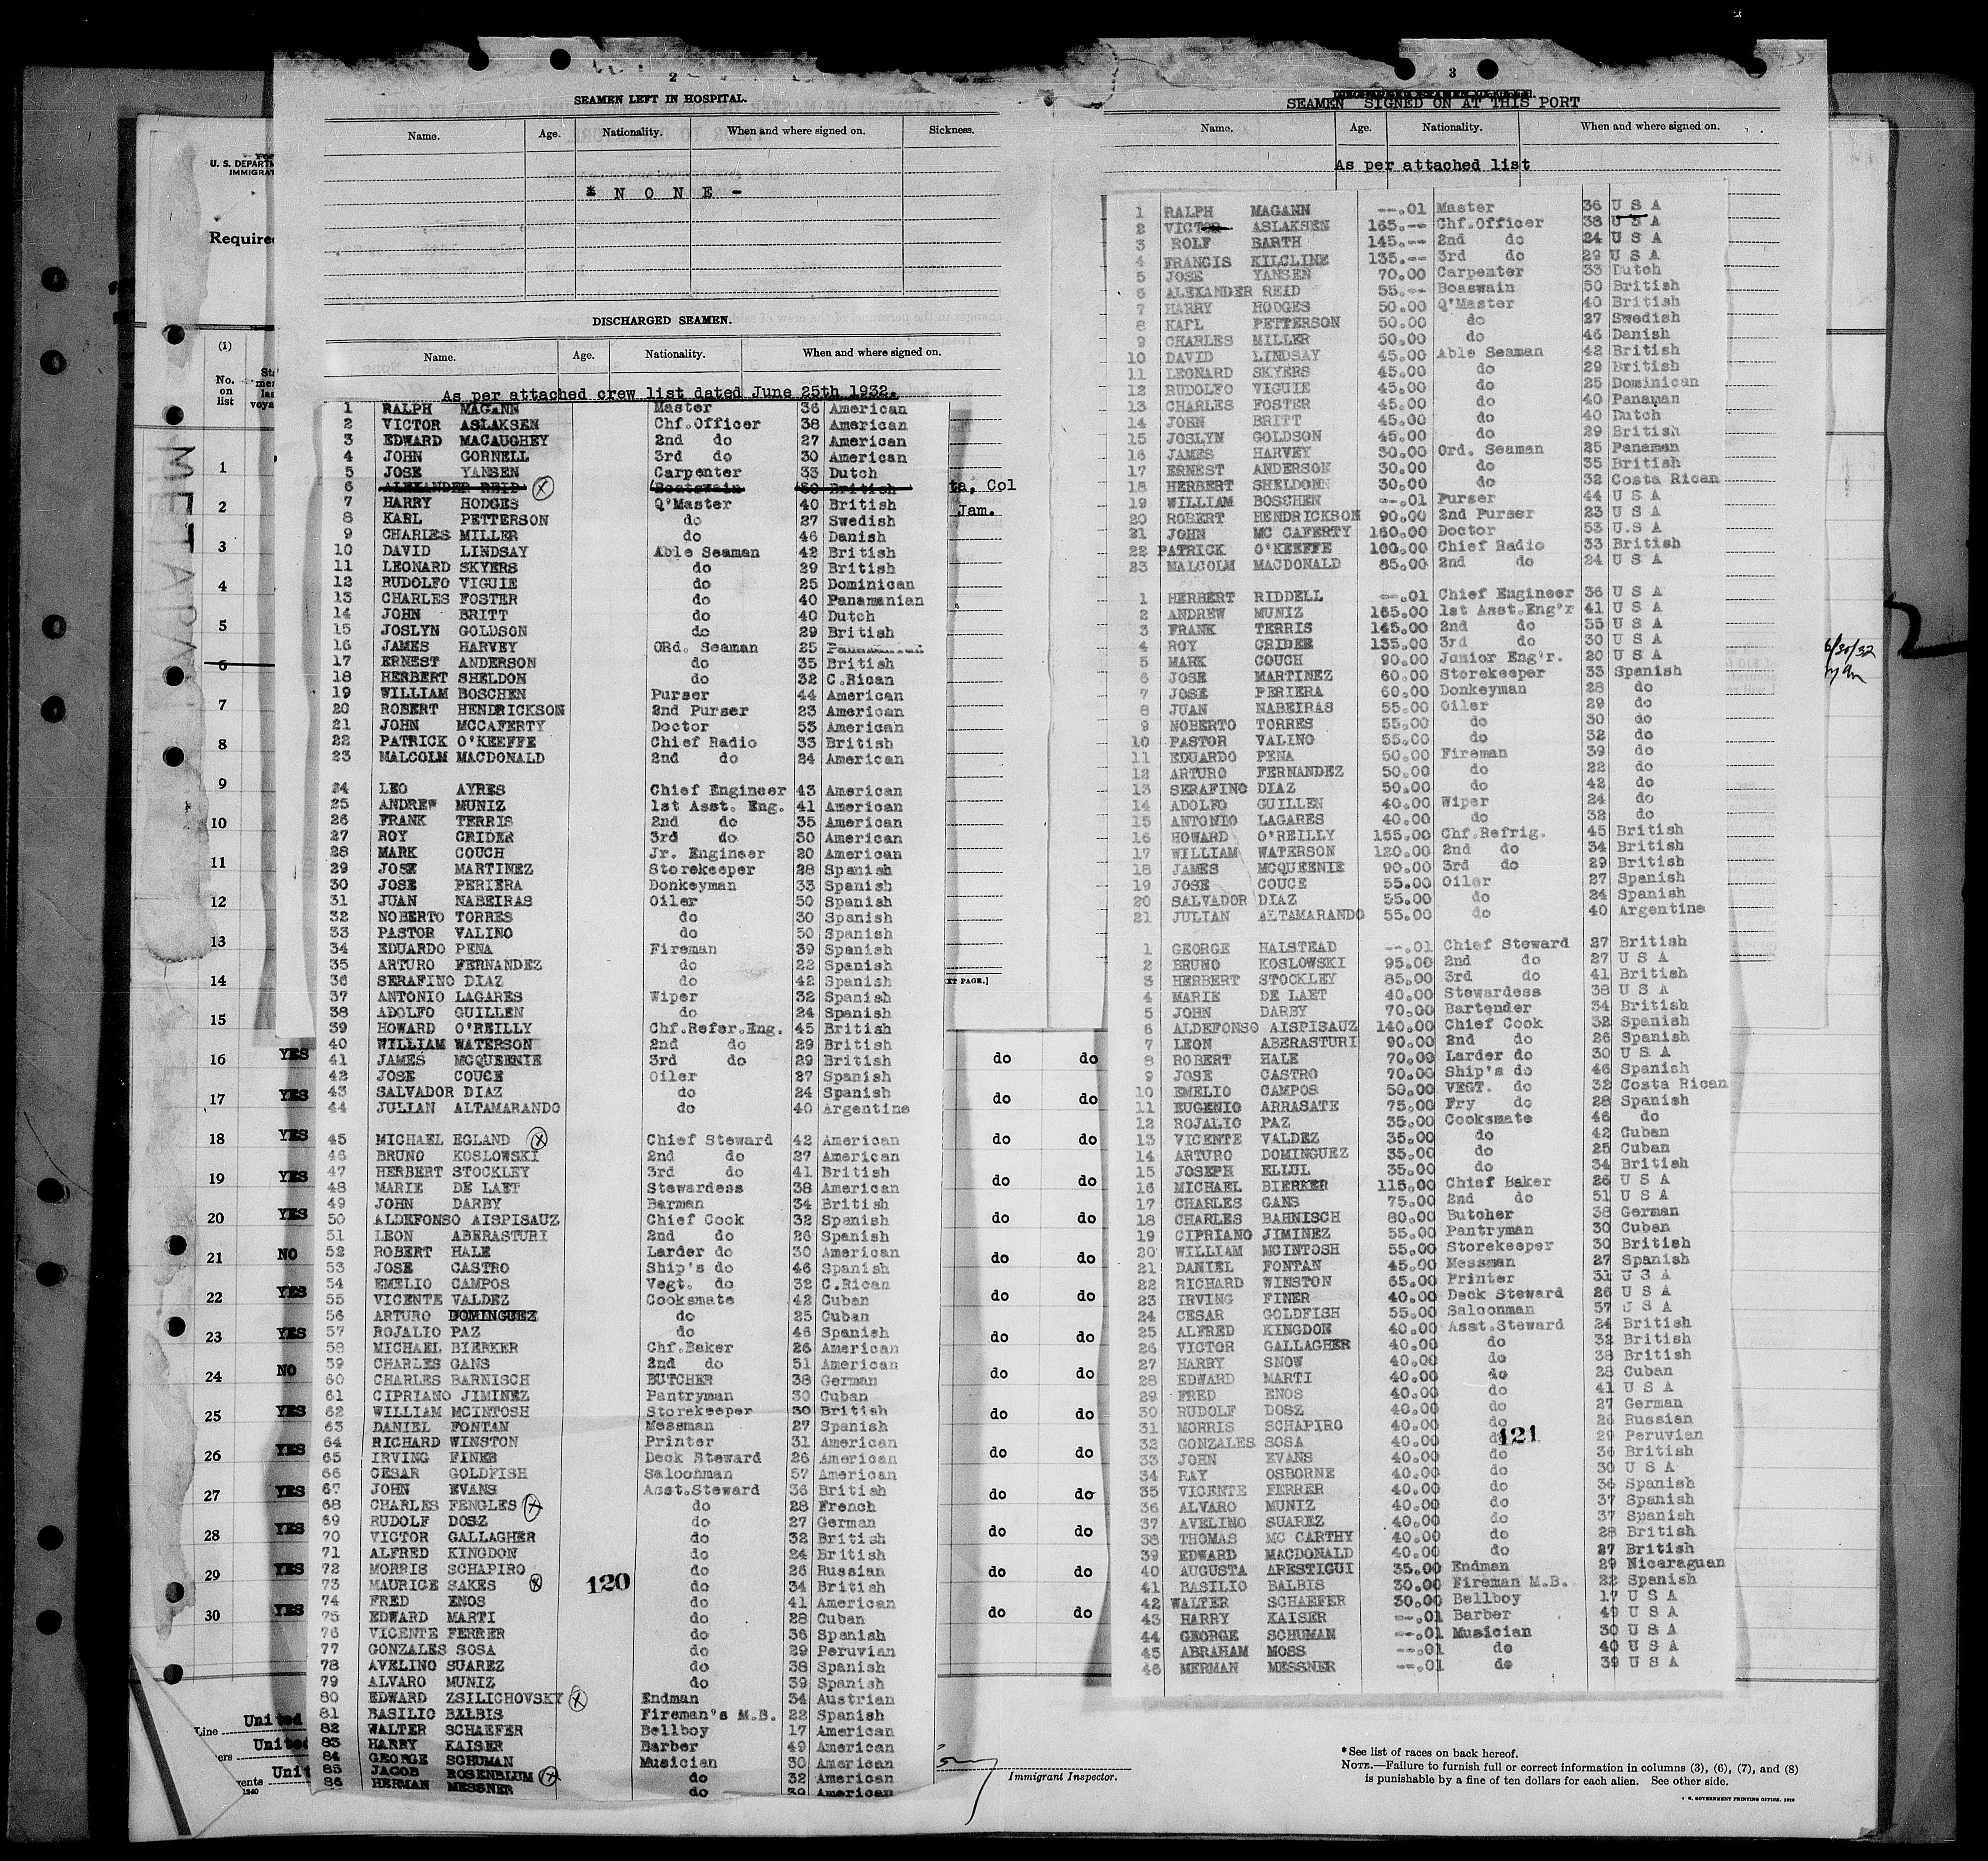 2
SEAMEN LEFT IN HOSPITAL.
Name. Age. Nationality. When and where signed on. Sickness.
* N O N E -
DISCHARGED SEAMEN.
Name. Age. Nationality. When and where signed on.
As per attached crew list dated June 25th 1932.
1 RALPH MAGANN Master 36 American
2 VICTOR ASLAKSEN Chf.Officer 38 American
3 EDWARD MACAUGHEY 2nd do 27 American
4 JOHN GORNELL 3rd do 30 American
5 JOSE YANSEN Carpenter 33 Dutch
6 ALEXANDER REID Boatswain 50 British
7 HARRY HODGES Q'Master 40 British
8 KARL PETTERSON do 27 Swedish
9 CHARLES MILLER do 46 Danish
10 DAVID LINDSAY Able Seaman 42 British
11 LEONARD SKYERS do 29 British
12 RUDOLFO VIGUIE do 25 Dominican
13 CHARLES FOSTER do 40 Panamanian
14 JOHN BRITT do 40 Dutch
15 JOSLYN GOLDSON do 29 British
16 JAMES HARVEY ORd. Seaman 25
17 ERNEST ANDERSON do 35 British
18 HERBERT SHELDON do 32 C.Rican
19 WILLIAM BOSCHEN Purser 44 American
20 ROBERT HENDRICKSON 2nd Purser 23 American
21 JOHN MCCAFERTY Doctor 53 American
22 PATRICK O'KEEFFE Chief Radio 33 British
23 MALCOLM MACDONALD 2nd do 24 American
24 LEO AYRES Chief Engineer 43 American
25 ANDREW MUNIZ 1st Asst. Eng. 41 American
26 FRANK TERRIS 2nd do 35 American
27 ROY CRIDER 3rd do 30 American
28 MARK COUCH Jr. Engineer 20 American
29 JOSE MARTINEZ Storekeeper 28 Spanish
30 JOSE PERIERA Donkeyman 33 Spanish
31 JUAN NABEIRAS Oiler 50 Spanish
32 NOBERTO TORRES do 30 Spanish
33 PASTOR VALINO do 50 Spanish
34 EDUARDO PENA Fireman 39 Spanish
35 ARTURO FERNANDEZ do 22 Spanish
36 SERAFINO DIAZ do 42 Spanish
37 ANTONIO LAGARES Wiper 32 Spanish
38 ADOLFO GUILLEN do 24 Spanish
39 HOWARD O'REILLY Chf.Refer.Eng. 45 British
40 WILLIAM WATERSON 2nd do 29 British
41 JAMES MCQUEENIE 3rd do 29 British
42 JOSE COUCE Oiler 27 Spanish
43 SALVADOR DIAZ do 24 Spanish
44 JULIAN ALTAMARANDO do 40 Argentine
45 MICHAEL EGLAND Chief Steward 42 American
46 BRUNO KOSLOWSKI 2nd do 27 American
47 HERBERT STOCKLEY 3rd do 41 British
48 MARIE DE LAET Stewardess 38 American
49 JOHN DARBY Barman 34 British
50 ALDEFONSO AISPISAUZ Chief Cook 32 Spanish
51 LEON ABERASTURI 2nd do 26 Spanish
52 ROBERT HALE Larder do 30 American
53 JOSE CASTRO Ship's do 46 Spanish
54 EMELIO CAMPOS Vegt. do 32 C.Rican
55 VICENTE VALDEZ Cooksmate 42 Cuban
56 ARTURO DOMINGUEZ do 25 Cuban
57 ROJALIO PAZ do 46 Spanish
58 MICHAEL BIERKER Chf.Baker 26 American
59 CHARLES GANS 2nd do 51 American
60 CHARLES BARNISCH BUTCHER 38 German
61 CIPRIANO JIMINEZ Pantryman 30 Cuban
62 WILLIAM MCINTOSH Storekeeper 30 British
63 DANIEL FONTAN Messman 27 Spanish
64 RICHARD WINSTON Printer 31 American
65 IRVING FINER Deck Steward 26 American
66 CESAR GOLDFISH Saloonman 57 American
67 JOHN EVANS Asst.Steward 36 British
68 CHARLES FENGLES do 28 French
69 RUDOLF DOSZ do 27 German
70 VICTOR GALLAGHER do 32 British
71 ALFRED KINGDON do 24 British
72 MORRIS SCHAPIRO do 26 Russian
73 MAURICE SAKES do 34 British
120
74 FRED ENOS do 41 American
75 EDWARD MARTI do 28 Cuban
76 VICENTE FERRER do 36 Spanish
77 GONZALES SOSA do 29 Peruvian
78 AVELINO SUAREZ do 38 Spanish
79 ALVARO MUNIZ do 39 Spanish
80 EDWARD ZSILICHOVSKY Endman 34 Austrian
81 BASILIO BALBIS Fireman's M.B. 22 Spanish
82 WALTER SCHAEFER Bellboy 17 American
83 HARRY KAISER Barber 49 American
84 GEORGE SCHUMAN Musician 30 American
85 JACOB ROSENBLUM do 32 American
86 HERMAN MESSNER do 39 American
3
SEAMEN SIGNED ON AT THIS PORT
Name. Age. Nationality. When and where signed on.
As per attached list
1 RALPH MAGANN --.01 Master 36 U S A
2 VICTOR ASLAKSEN 165.-- Chf.Officer 38 U S A
3 ROLF BARTH 145.-- 2nd do 24 U S A
4 FRANCIS KILCLINE 135.-- 3rd do 29 U S A
5 JOSE YANSEN 70.00 Carpenter 33 Dutch
6 ALEXANDER REID 55.-- Boaswain 50 British
7 HARRY HODGES 50.00 Q'Master 40 British
8 KARL PETTERSON 50.00 do 27 Swedish
9 CHARLES MILLER 50.00 do 46 Danish
10 DAVID LINDSAY 45.00 Able Seaman 42 British
11 LEONARD SKYERS 45.00 do 29 British
12 RUDOLFO VIGUIE 45.00 do 25 Dominican
13 CHARLES FOSTER 45.00 do 40 Panaman
14 JOHN BRITT 45.00 do 40 Dutch
15 JOSLYN GOLDSON 45.00 do 29 British
16 JAMES HARVEY 30.00 Ord. Seaman 25 Panaman
17 ERNEST ANDERSON 30.00 do 35 British
18 HERBERT SHELDONN 30.00 do 32 Costa Rican
19 WILLIAM BOSCHEN --.01 Purser 44 U S A
20 ROBERT HENDRICKSON 90.00 2nd Purser 23 U S A
21 JOHN MC CAFERTY 160.00 Doctor 53 U.S A
22 PATRICK O'KEEFFE 100.00 Chief Radio 33 British
23 MALCOLM MACDONALD 85.00 2nd do 24 U S A
1 HERBERT RIDDELL --.01 Chief Engineer 36 U S A
2 ANDREW MUNIZ 165.00 1st Asst.Eng'r 41 U S A
3 FRANK TERRIS 145.00 2nd do 35 U S A
4 ROY CRIDER 135.00 3rd do 30 U S A
5 MARK COUCH 90.00 Junior Eng'r. 20 U S A
6 JOSE MARTINEZ 60.00 Storekeeper 33 Spanish
7 JOSE PERIERA 60.00 Donkeyman 28 do
8 JUAN NABEIRAS 55.00 Oiler 29 do
9 NOBERTO TORRES 55.00 do 30 do
10 PASTOR VALINO 55.00 do 32 do
11 EDUARDO PENA 50.00 Fireman 39 do
12 ARTURO FERNANDEZ 50.00 do 22 do
13 SERAFINO DIAZ 50.00 do 42 do
14 ADOLFO GUILLEN 40.00 Wiper 24 do
15 ANTONIO LAGARES 40.00 do 32 do
16 HOWARD O'REILLY 155.00 Chf.Refrig. 45 British
17 WILLIAM WATERSON 120.00 2nd do 34 British
18 JAMES MCQUEENIE 90.00 3rd do 29 British
19 JOSE COUCE 55.00 Oiler 27 Spanish
20 SALVADOR DIAZ 55.00 do 24 Spanish
21 JULIAN ALTAMARANDO 55.00 do 40 Argentine
1 GEORGE HALSTEAD --.01 Chief Steward 27 British
2 BRUNO KOSLOWSKI 95.00 2nd do 27 U S A
3 HERBERT STOCKLEY 85.00 3rd do 41 British
4 MARIE DE LAET 40.00 Stewardess 38 U S A
5 JOHN DARBY 70.00 Bartender 34 British
6 ALDEFONSO AISPISAUZ 140.00 Chief Cook 32 Spanish
7 LEON ABERASTURI 90.00 2nd do 26 Spanish
8 ROBERT HALE 70.00 Larder do 30 U S A
9 JOSE CASTRO 70.00 Ship's do 46 Spanish
10 EMELIO CAMPOS 50.00 VEGT. do 32 Costa Rican
11 EUGENIO ARRASATE 75.00 Fry do 28 Spanish
12 ROJALIO PAZ 35.00 Cooksmate 46 do
13 VICENTE VALDEZ 35.00 do 42 Cuban
14 ARTURO DOMINGUEZ 35.00 do 25 Cuban
15 JOSEPH ELLUL 35.00 do 34 British
16 MICHAEL BIERKER 115.00 Chief Baker 26 U S A
17 CHARLES GANS 75.00 2nd do 51 U S A
18 CHARLES BAHNISCH 80.00 Butcher 38 German
19 CIPRIANO JIMINEZ 55.00 Pantryman 30 Cuban
20 WILLIAM MCINTOSH 55.00 Storekeeper 30 British
21 DANIEL FONTAN 45.00 Messman 27 Spanish
22 RICHARD WINSTON 65.00 Printer 31 U S A
23 IRVING FINER 40.00 Deck Steward 26 U S A
24 CESAR GOLDFISH 55.00 Saloonman 57 U S A
25 ALFRED KINGDON 40.00 Asst.Steward 24 British
26 VICTOR GALLAGHER 40.00 do 32 British
27 HARRY SNOW 40.00 do 38 British
28 EDWARD MARTI 40.00 do 28 Cuban
29 FRED ENOS 40.00 do 41 U S A
30 RUDOLF DOSZ 40.00 do 27 German
31 MORRIS SCHAPIRO 40.00 do 26 Russian
32 GONZALES SOSA 40.00 do 29 Peruvian
121
33 JOHN EVANS 40.00 do 36 British
34 RAY OSBORNE 40.00 do 30 U S A
35 VICENTE FERRER 40.00 do 36 Spanish
36 ALVARO MUNIZ 40.00 do 37 Spanish
37 AVELINO SUAREZ 40.00 do 37 Spanish
38 THOMAS MC CARTHY 40.00 do 28 British
39 EDWARD MACDONALD 40.00 do 27 British
40 AUGUSTA ARESTIGUI 35.00 Endman 29 Nicaraguan
41 BASILIO BALBIS 30.00 Fireman M.B. 22 Spanish
42 WALTER SCHAEFER 30.00 Bellboy 17 U S A
43 HARRY KAISER --.01 Barber 49 U S A
44 GEORGE SCHUMAN --.01 Musician 30 U S A
45 ABRAHAM MOSS --.01 do 40 U S A
46 MERMAN MESSNER --.01 do 39 U S A
U. S. DEPARTM
IMMIGRAT
Require
(1)
No. on list
METAPAN
ta, Col
Jam.
6/30/32
1
2
3
4
5
6
7
8
9
10
11
12
13
14
15
XT PAGE.]
16 YES do do
17 YES do do
18 YES do do
19 YES do do
20 YES do do
21 NO do do
22 YES do do
23 YES do do
24 NO do do
25 YES do do
26 YES do do
27 YES do do
28 YES do do
29 YES do do
30 YES do do
Line United
ers United
gents Unit
1240
Immigrant Inspector.
* See list of races on back hereof.
NOTE.—Failure to furnish full or correct information in columns (3), (6), (7), and (8)
is punishable by a fine of ten dollars for each alien. See other side.
GOVERNMENT PRINTING OFFICE.